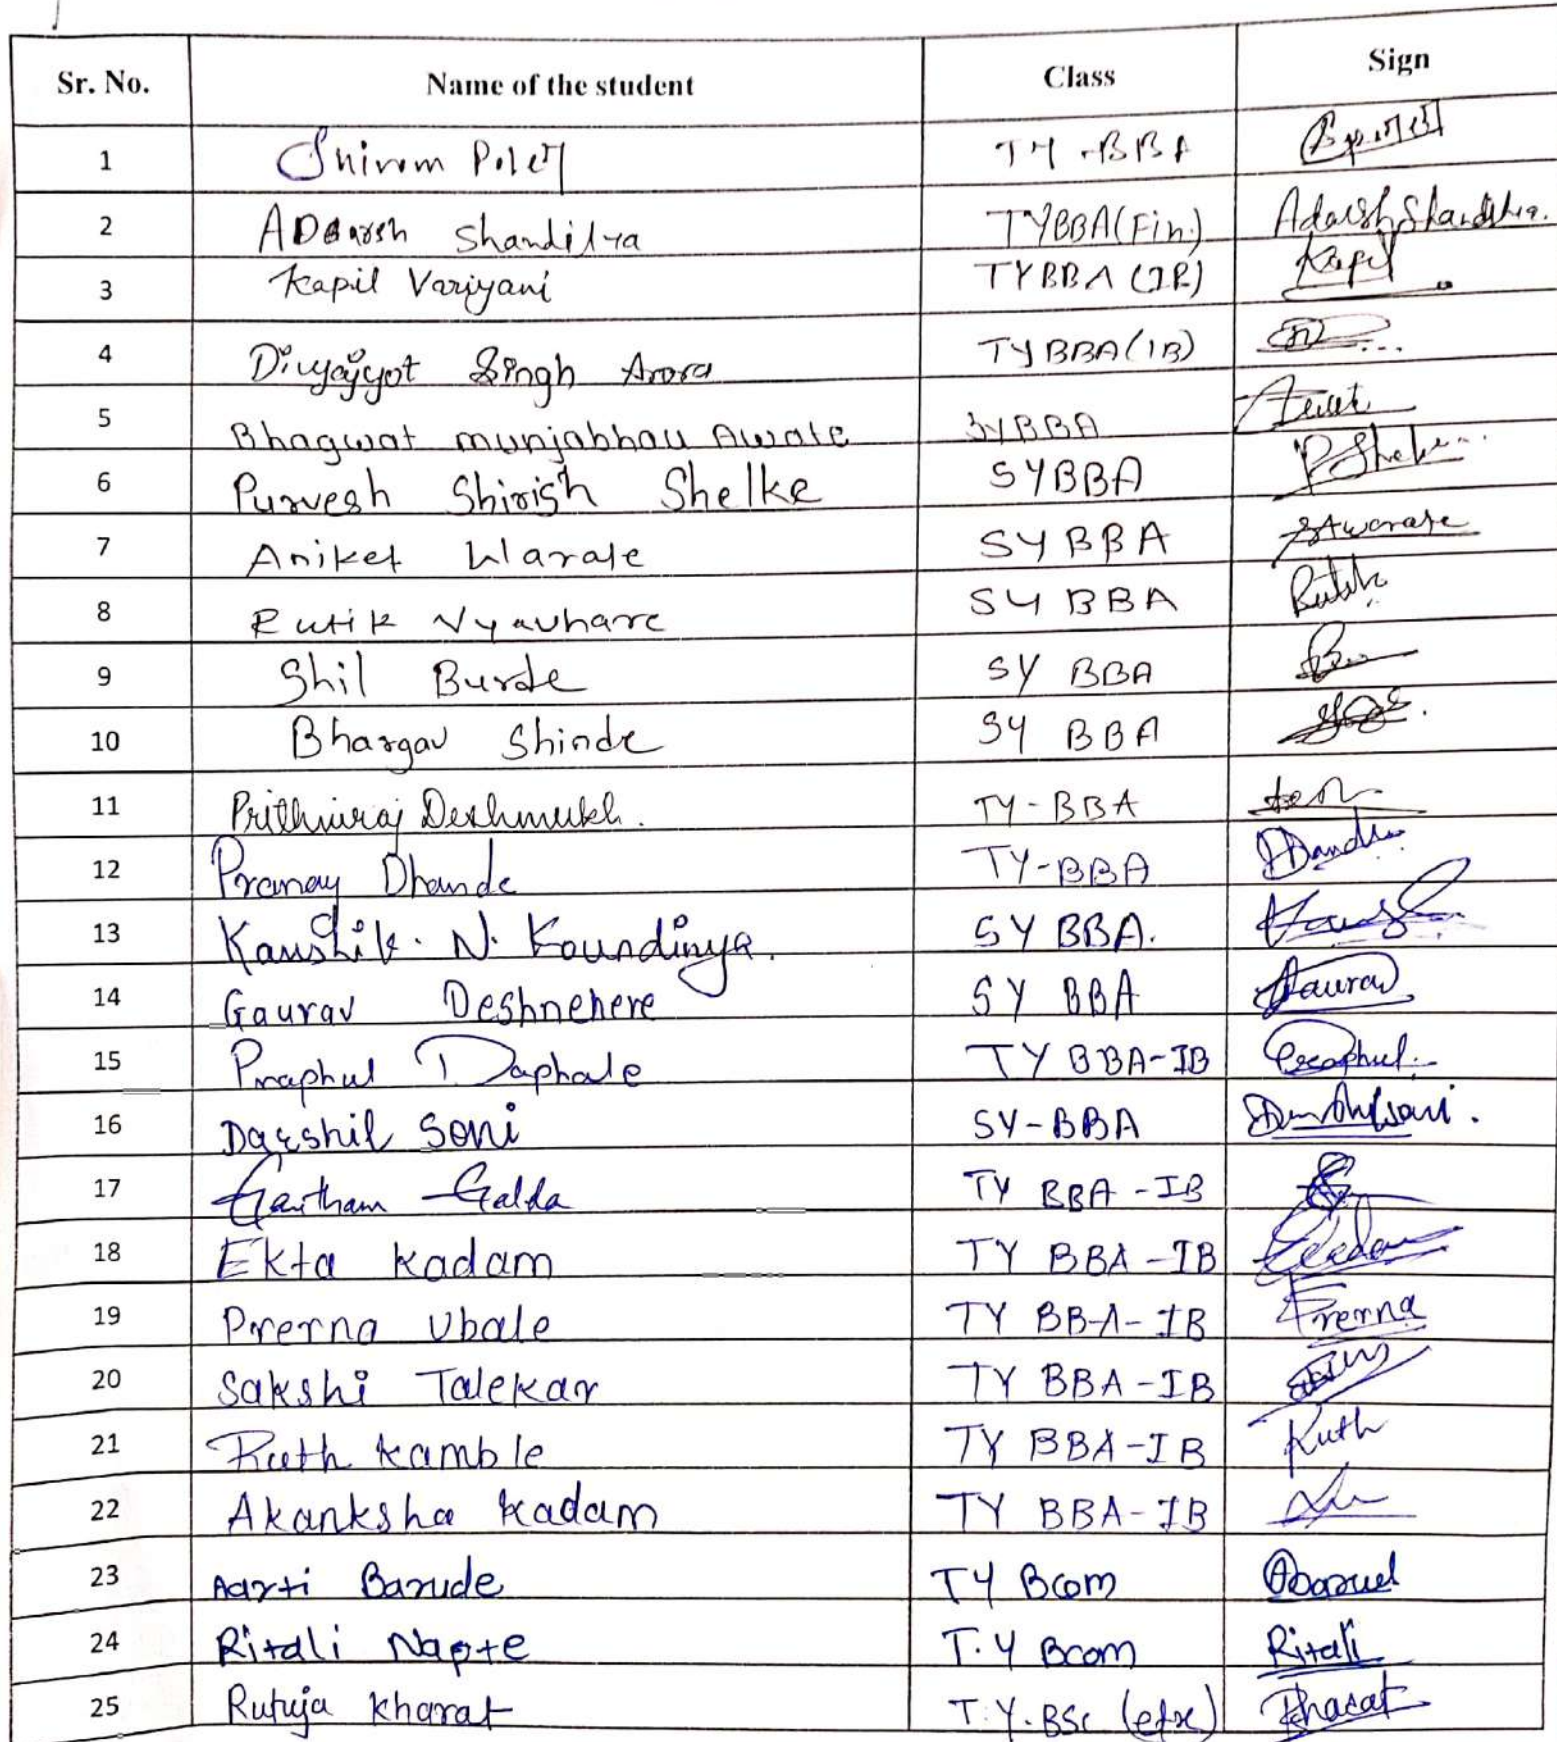 Sr. No. Name of the student Class Sign
1 Shivam TY-BBA
2 Adarsh Shandilya TYBBA(Fin.) Adarsh Shandilya.
3 Kapil Variyani TYBBA (IB) Kapil
4 Divyajyot Singh Arora TYBBA(IB)
5 Bhagwat munjabhau Awate SYBBA
6 Purvesh Shirish Shelke SYBBA
7 Aniket Warale SYBBA
8 Rutik Vyavhare SY BBA Rutik
9 Shil Burde SY BBA
10 Bhargav Shinde SY BBA
11 Prithviraj Deshmukh. TY-BBA
12 Pranay Dhande TY-BBA
13 Kaushik. N. Koundinya. SY BBA.
14 Gaurav Deshnehere SY BBA Gaurav
15 Praphul Daphale TY BBA-IB Praphul.
16 Darshil Soni SY-BBA
17 Gautham Galda TY BBA-IB
18 Ekta Kadam TY BBA-IB
19 Prerna Ubale TY BBA-IB Prerna
20 Sakshi Talekar TY BBA-IB
21 Ruth Kamble TY BBA-IB Ruth
22 Akanksha Kadam TY BBA-IB
23 Aarti Barude TY Bcom
24 Ritali Napte T.Y Bcom Ritali
25 Rutuja Kharat T.Y.BSc Kharat